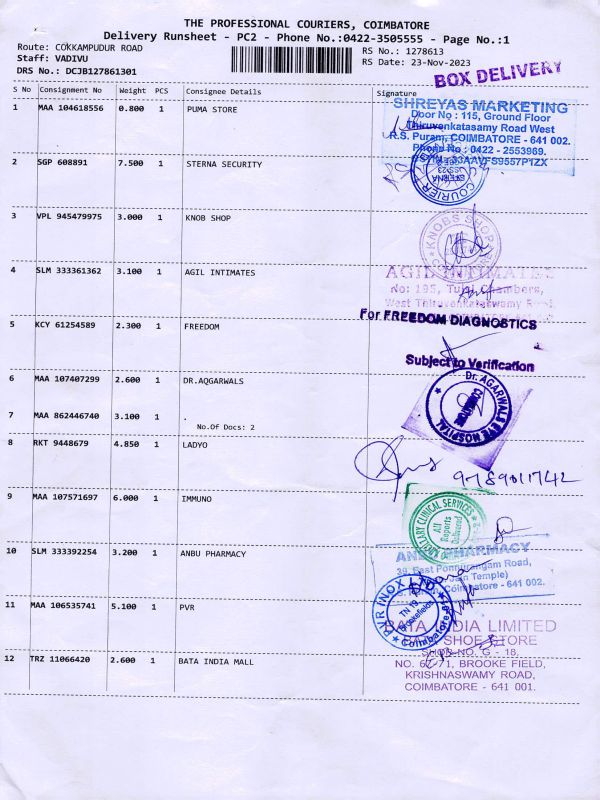 THE PROFESSIONAL COURIERS, COIMBATORE
Delivery Runsheet - PC2 - Phone No.:0422-3505555 - Page No.:1
Route: COKKAMPUDUR ROAD
RS No.: 1278613
Staff: VADIVU
RS Date: 23-Nov-2023
DRS No.: DCJB127861301
BOX DELIVERY
S No Consignment No Weight PCS Consignee Details Signature
1 MAA 104618556 0.800 1 PUMA STORE
SHREYAS MARKETING
Door No : 115, Ground Floor
Thiruvenkatasamy Road West
R.S. Puram, COIMBATORE - 641 002.
Phone No : 0422 - 2553989.
2 SGP 608891 7.500 1 STERNA SECURITY
COURIER
STERNA
3 VPL 945479975 3.000 1 KNOB SHOP
KNOBS SHOP
4 SLM 333361362 3.100 1 AGIL INTIMATES
AGIL INTIMATES
No: 195, Chambers,
West Thiruvenkataswamy Road,
5 KCY 61254589 2.300 1 FREEDOM
For FREEDOM DIAGNOSTICS
Subject to Verification
6 MAA 107407299 2.600 1 DR.AQGARWALS
Dr. AGARWALS EYE HOSPITAL
7 MAA 862446740 3.100 1 .
No.Of Docs: 2
8 RKT 9448679 4.850 1 LADYO
9789011742
9 MAA 107571697 6.000 1 IMMUNO
CLINICAL SERVICES
All
Reports
10 SLM 333392254 3.200 1 ANBU PHARMACY
ANBU PHARMACY
39, East Ponnurangam Road,
Temple)
Coimbatore - 641 002.
11 MAA 106535741 5.100 1 PVR
PVR INOX LTD.
TN 19
Brookefields
Coimbatore
12 TRZ 11066420 2.600 1 BATA INDIA MALL
BATA INDIA LIMITED
SHOE STORE
SHOP NO. G - 18,
NO. 67-71, BROOKE FIELD,
KRISHNASWAMY ROAD,
COIMBATORE - 641 001.